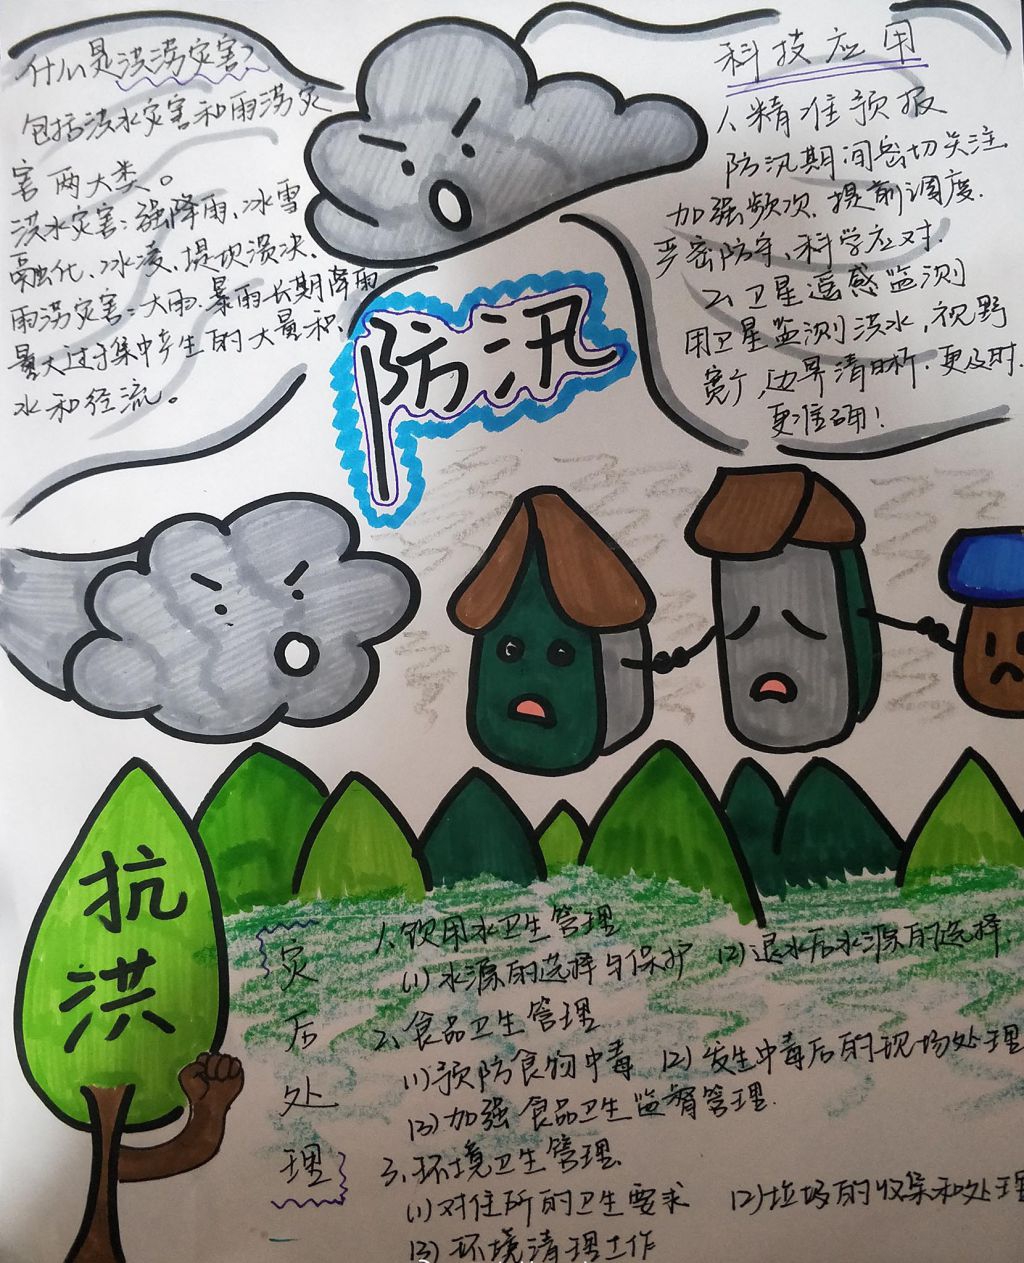 什么是洪涝灾害?
包括洪水灾害和雨涝灾
害两大类。
洪水灾害:强降雨、冰雪
融化、冰凌、堤坎溃决、
雨涝灾害:大雨、暴雨长期降雨
量大过于集中产生的大量积
水和径流。
科技应用
1、精准预报
防汛期间密切关注
加强频次、提前调度.
严密防守、科学应对.
2、卫星遥感监测
用卫星监测洪水,视野
宽广,边界清晰.更及时.
更准确!
防汛
抗
洪
灾
后
处
理
1、饮用水卫生管理
(1)水源的选择与保护 (2)退水后水源的选择.
2、食品卫生管理
(1)预防食物中毒 (2)发生中毒后的现场处理
(3)加强食品卫生监督管理.
3、环境卫生管理
(1)对住所的卫生要求 (2)垃圾的收集和处理
(3)环境清理工作